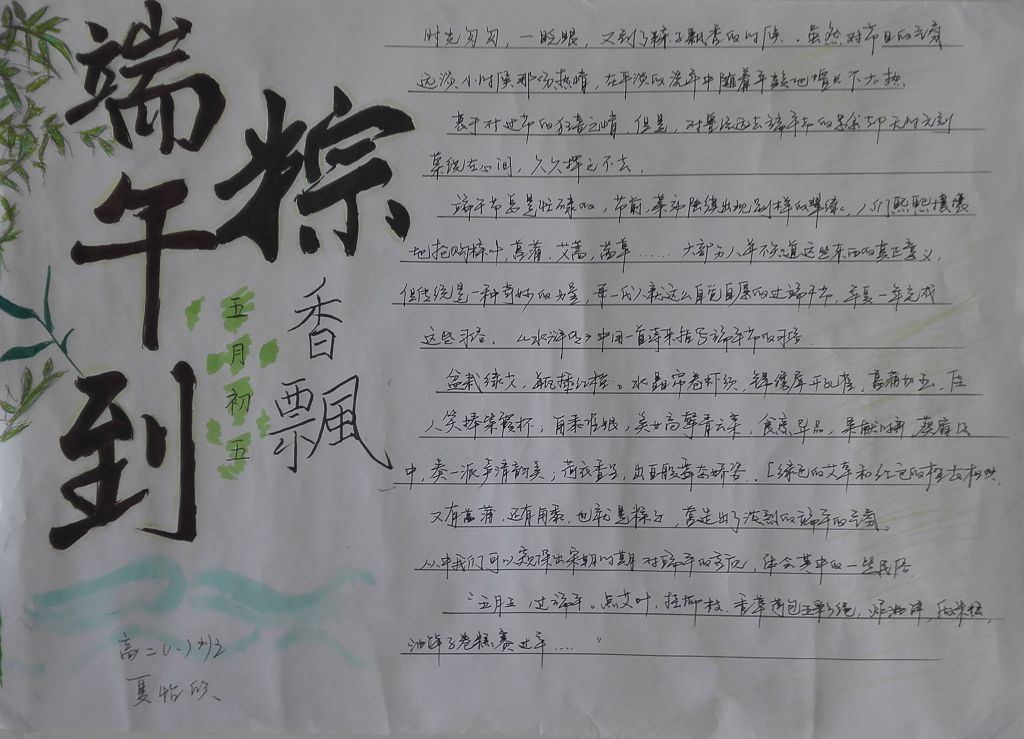 端午到
粽
香飘
五月初五
时光匆匆，一眨眼，又到了粽子飘香的时候．虽然对节日的
远没小时候那份热情，在平淡的流年中随着年龄地增长不太热
衷于对过节的 之情，但是，对曾经过去端午节的 却无时无刻
萦绕在心间，久久挥之不去．
端午节总是忙碌的，节前，菜市陆续出现 ，人们熙熙攘攘
地抢购粽叶，菖蒲，艾蒿， 草…… 大部分人并不知道这些东西的真正意义，
但传统是一种奇妙的力量，每一代人就这么自觉自愿的过端午节，年复一年完成
这些习俗．《水浒 》中用一首诗来描写端午节的习俗．
盆栽绿艾，瓶插红榴。水晶帘卷虾须，锦绣屏开孔雀，菖蒲切玉，佳
人笑捧紫霞杯，角黍堆银，美女高擎青云案，食烹异品，果献时新，葵扇风
中，奏一派声清韵美；荷衣香里，出百般舞态娇容．［绿色的艾草和红色的 相映，
又有菖蒲，还有角黍，也就是粽子，营造出了浓烈的端午的
从中我们可以窥探出宋朝时期对端午的 ，体会其中的一些民俗．
"五月五，过端午。点艾叶，挂柳枝，香草荷包五彩绳，炸油饼，
油饼子卷糕赛过年….."
高二(一)班
夏怡欣